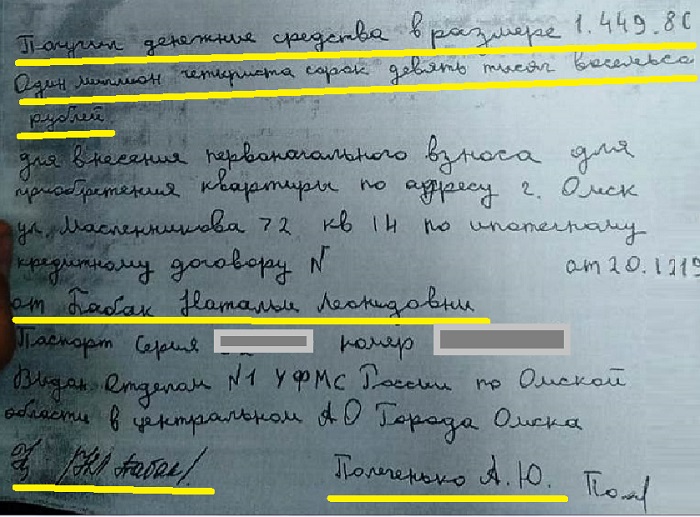 Получил денежние средства в размере 1.449.80
Один миллион четыриста сорок девять тисяч восемьсо
рублей.
для внесения первоначального взноса для
приобретения квартиры по адресу г. Омск
ул. Масленникова 72 кв 14 по ипотечному
кредитному договору N от 20.1219
от Бабак Натальи Леонидовни
Паспорт Серия номер
Выдан Отделом N1 УФМС России по Омской
области в центральном АО Города Омска
/НЛ Бабак/ Полеченько А.Ю.